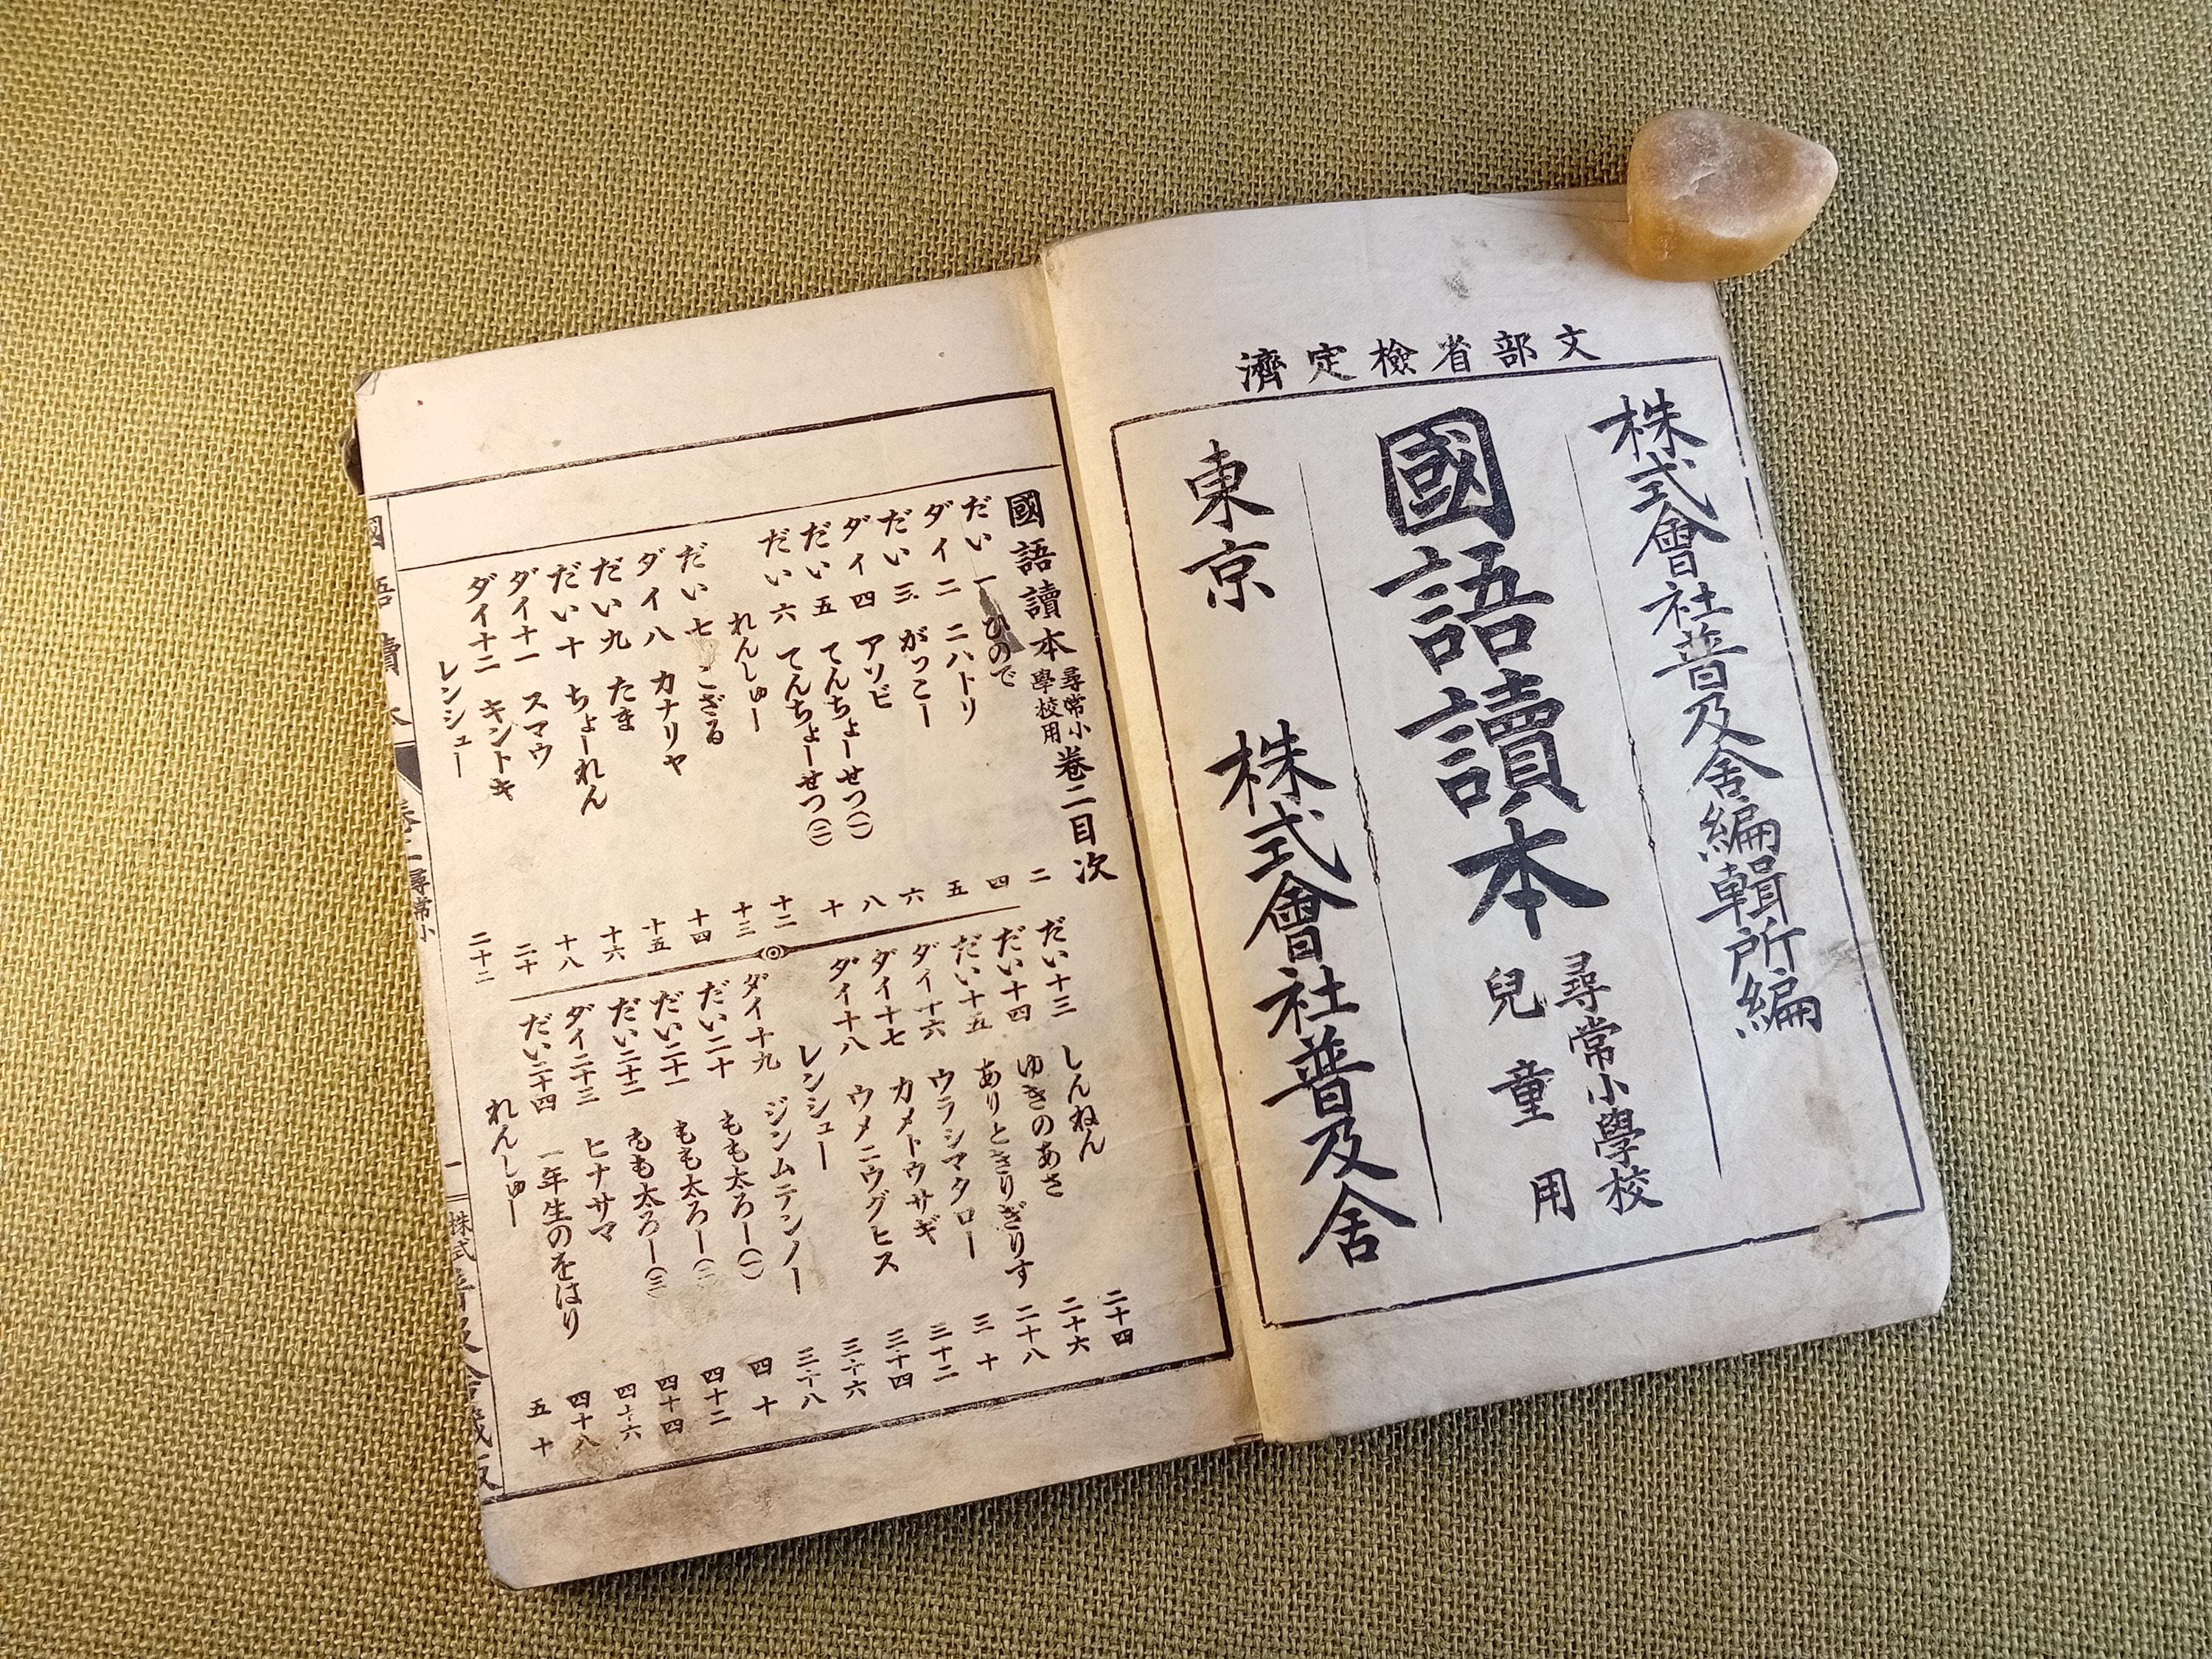 文部省檢定濟
株式會社普及舍編輯所編
國語讀本
尋常小學校
兒童用
東京 株式會社普及舍
國語讀本 尋常小學校用 卷二目次
だい一 ひので 二
ダイ二 ニハトリ 四
だい三 がっこー 五
ダイ四 アソビ 六
だい五 てんちょーせつ(一) 八
だい六 てんちょーせつ(二) 十
れんしゅー 十二
だい七 こざる 十三
ダイ八 カナリヤ 十四
だい九 たま 十五
だい十 ちょーれん 十六
ダイ十一 スマウ 十八
ダイ十二 キントキ 二十
レンシュー 二十二
だい十三 しんねん 二十四
だい十四 ゆきのあさ 二十六
だい十五 ありときりぎりす 二十八
ダイ十六 ウラシマタロー 三十
ダイ十七 カメトウサギ 三十二
ダイ十八 ウメニウグヒス 三十四
レンシュー 三十六
ダイ十九 ジンムテンノー 三十八
だい二十 もも太ろー(一) 四十
だい二十一 もも太ろー(二) 四十二
だい二十二 もも太ろー(三) 四十四
ダイ二十三 ヒナサマ 四十六
だい二十四 一年生のをはり 四十八
れんしゅー 五十
國語讀本 卷二 尋常小 一 株式